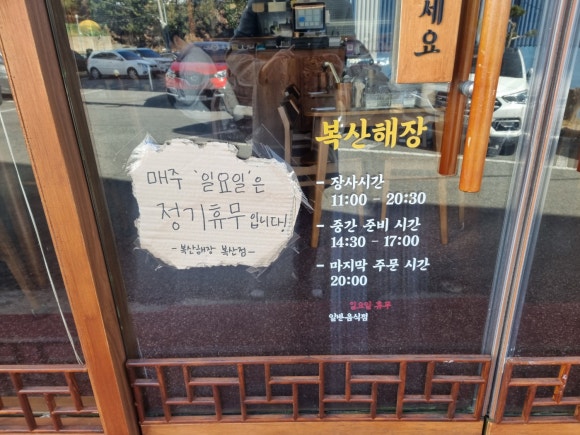 세요
매주 '일요일'은
정기휴무입니다!
- 복산해장 복산점 -
복산해장
- 장사시간
11:00 - 20:30
- 중간 준비 시간
14:30 - 17:00
- 마지막 주문 시간
20:00
일요일 휴무
일반음식점